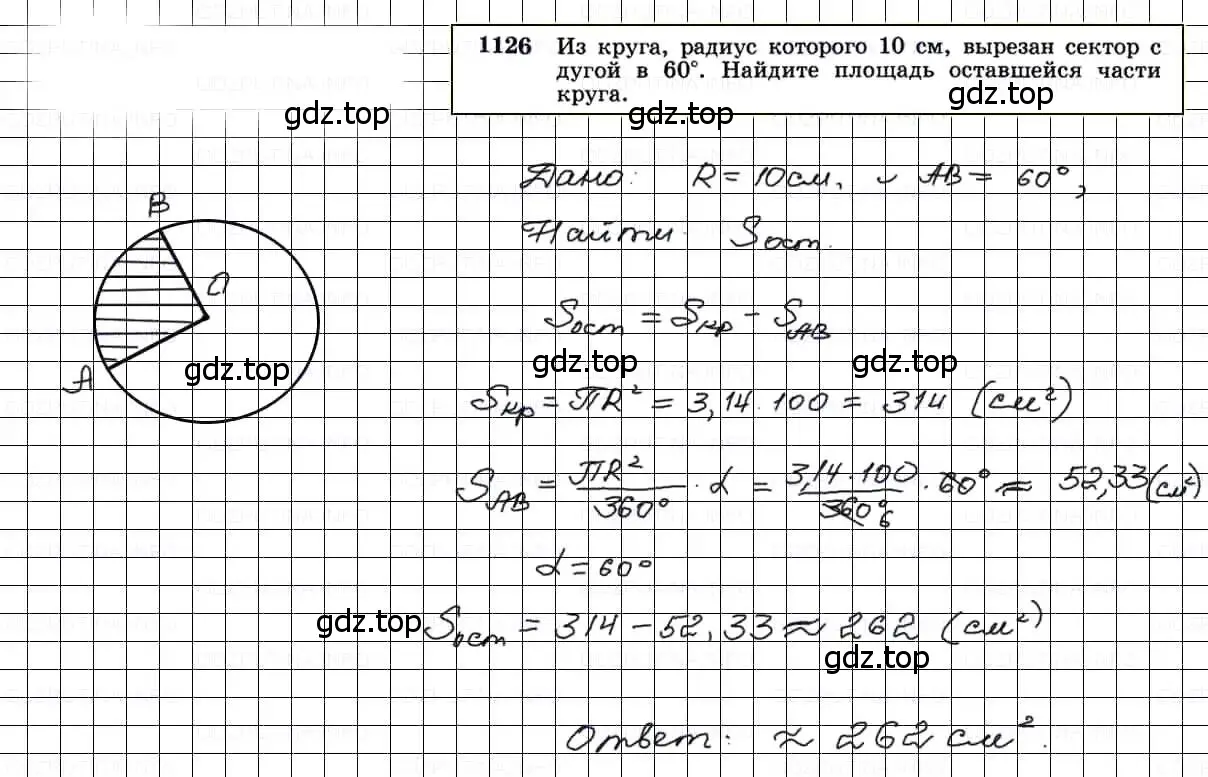 1126 Из круга, радиус которого 10 см, вырезан сектор с
дугой в 60°. Найдите площадь оставшейся части
круга.
gdz.top gdz.top gdz.top
Дано: R = 10 см, ◡ AB = 60°,
B
Найти: Sост.
O
Sост = Sкр - SAB
gdz.top gdz.top gdz.top
A
Sкр = ПR² = 3,14 · 100 = 314 (см²)
SAB = ПR²/360° · α = 3,14 · 100/360° 6 · 60° ≈ 52,33 (см²)
α = 60°
gdz.top
Sост = 314 - 52,33 ≈ 262 (см²)
gdz.top
Ответ: ≈ 262 см².